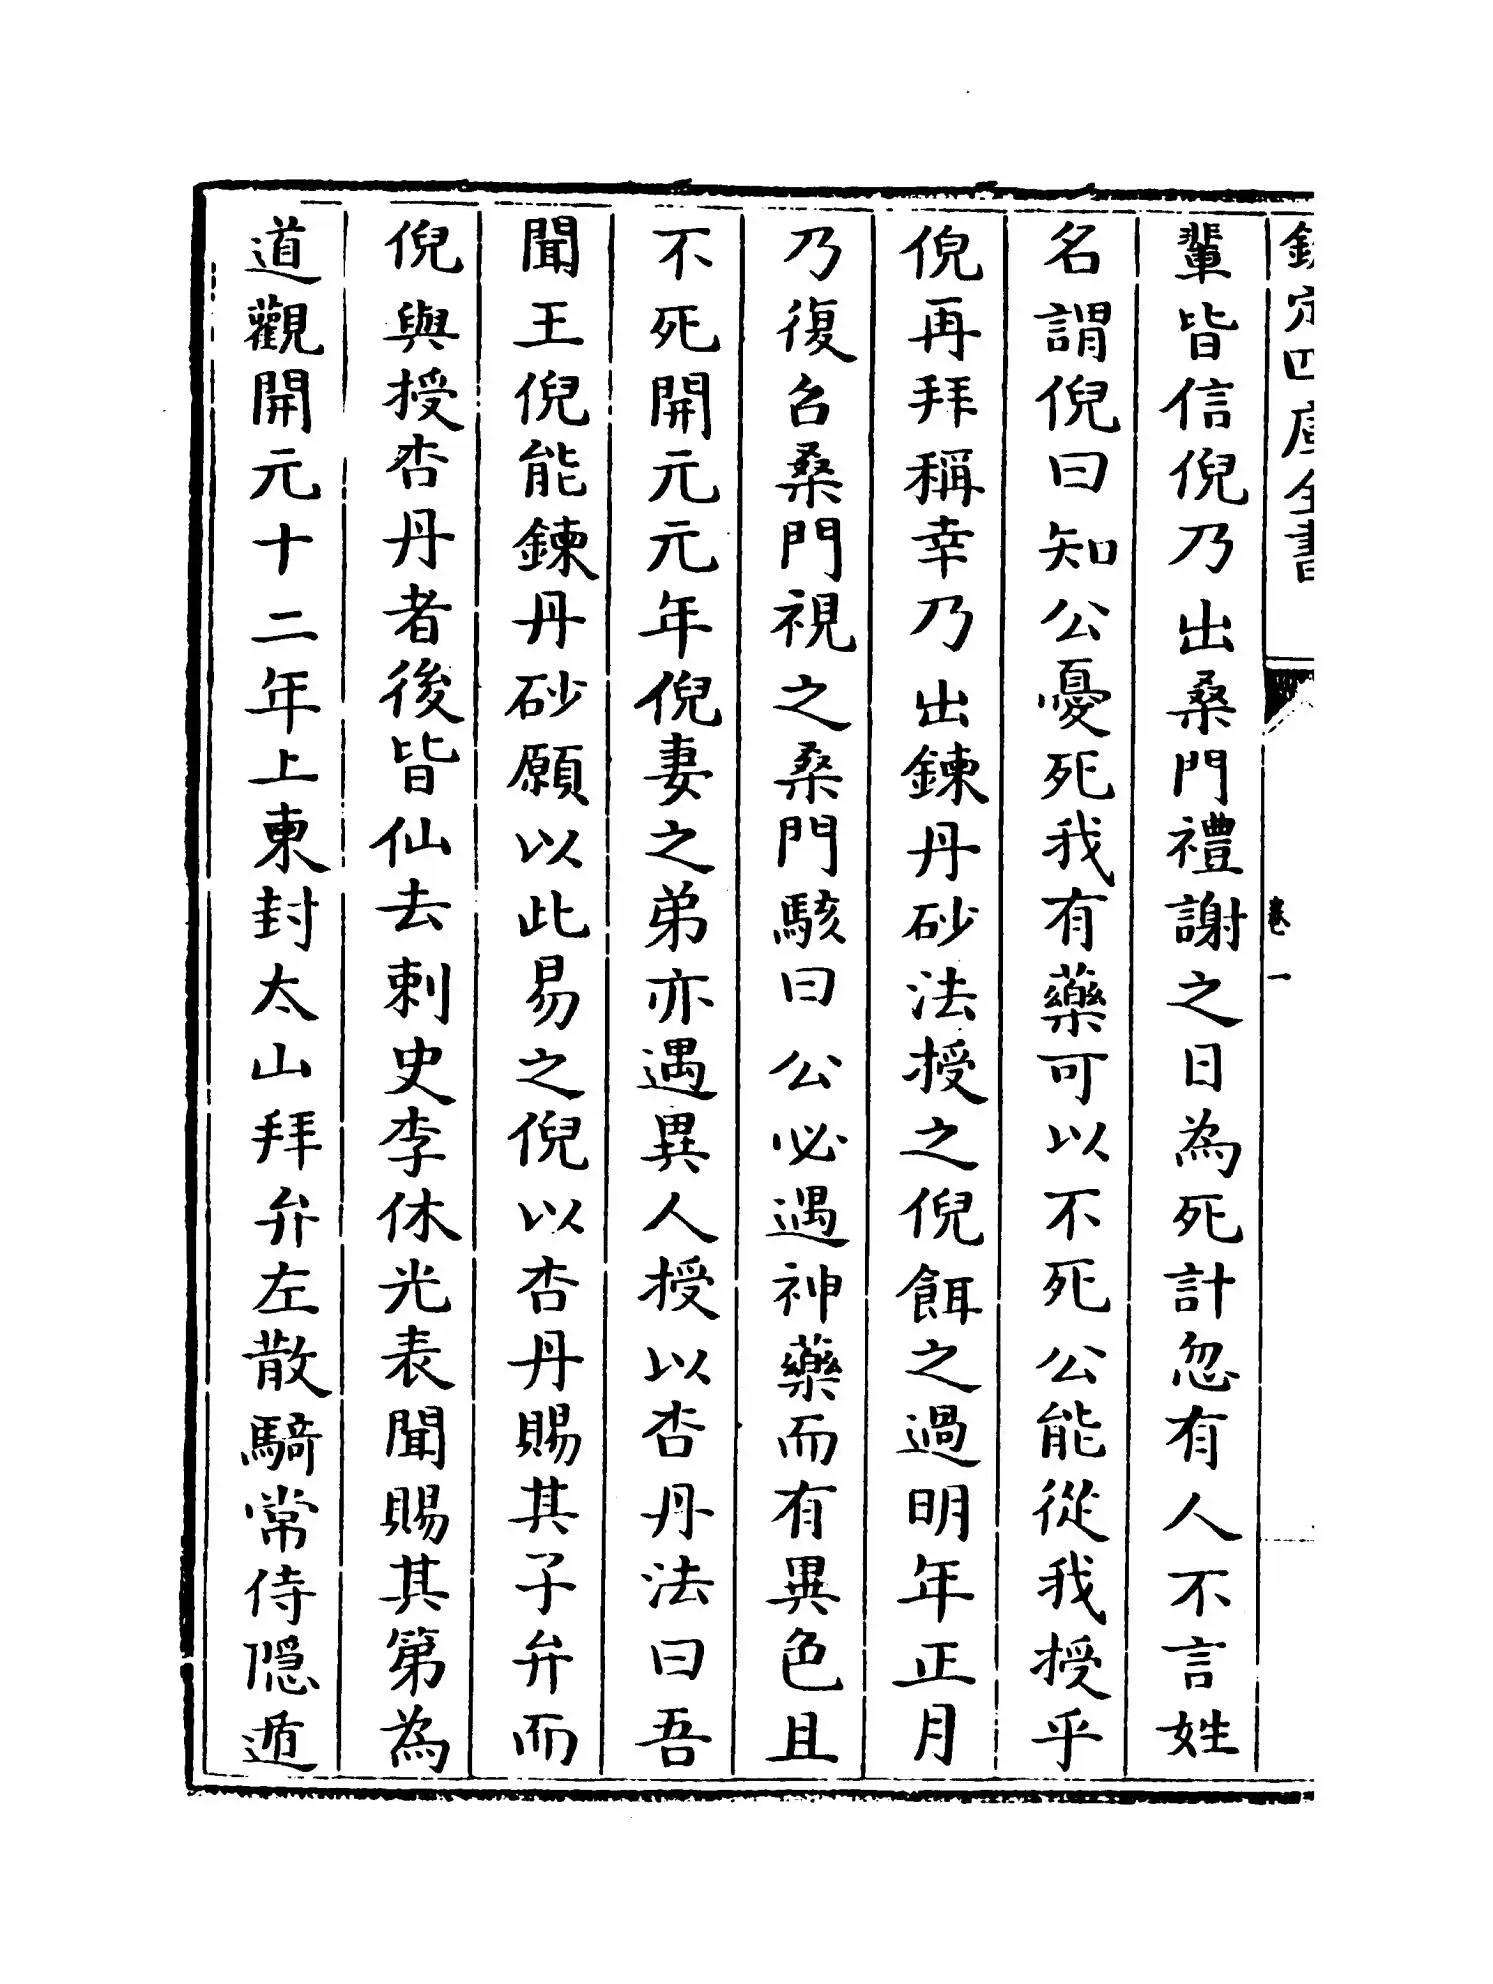 欽定四庫全書
卷一
輩皆信倪乃出桑門禮謝之日為死計忽有人不言姓
名謂倪曰知公憂死我有藥可以不死公能從我授乎
倪再拜稱幸乃出鍊丹砂法授之倪餌之過明年正月
乃復召桑門視之桑門駭曰公必遇神藥而有異色且
不死開元元年倪妻之弟亦遇異人授以杏丹法曰吾
聞王倪能鍊丹砂願以此易之倪以杏丹賜其子弁而
倪與授杏丹者後皆仙去刺史李休光表聞賜其第為
道觀開元十二年上東封太山拜弁左散騎常侍隱遁